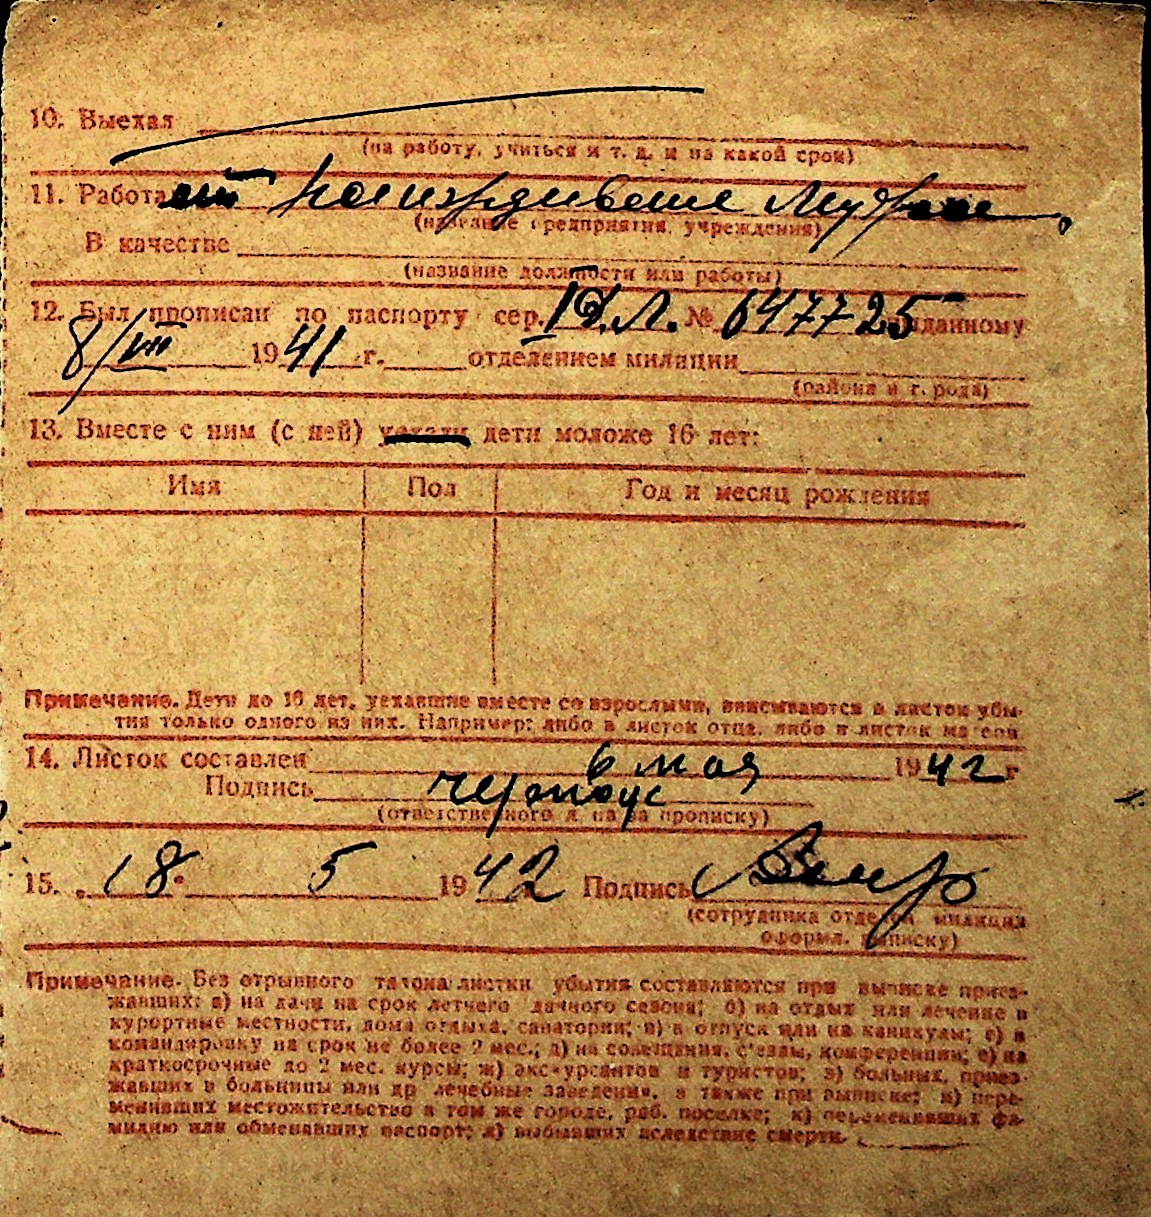 10. Выехал
(на работу, учиться и т. д. и на какой срок)
11. Работа
(название предприятия, учреждения)
В качестве
(название должности или работы)
12. Был прописан по паспорту сер. Л. № 647725 выданному
8/VIII 1941 г. отделением милиции
(района и города)
13. Вместе с ним (с ней) уехали дети моложе 16 лет:
Имя Пол Год и месяц рождения
Примечание. Дети до 16 лет, уехавшие вместе со взрослыми, вписываются в листок убы-
тия только одного из них. Например: либо в листок отца, либо в листок матери
14. Листок составлен 6 мая 1942 г
Подпись Черноус
(ответственного л. па за прописку)
15. „18“ 5 1942 Подпись
(сотрудника отдел. милиции
оформ. выписку)
Примечание. Без отрывного талона листки убытия составляются при выписке приез-
жавших: а) на дачи на срок летнего дачного сезона; б) на отдых или лечение в
курортные местности, дома отдыха, санатории; в) в отпуск или на каникулы; г) в
командировку на срок не более 2 мес.; д) на совещания, с'езды, конференции; е) на
краткосрочные до 2 мес. курсы; ж) экскурсантов и туристов; з) больных, приез-
жавших в больницы или др лечебные заведения, а также при выписке: и) пере-
менивших местожительство в том же городе, раб. поселке; к) переменивших фа-
милию или обменявших паспорт; л) выбывших вследствие смерти.